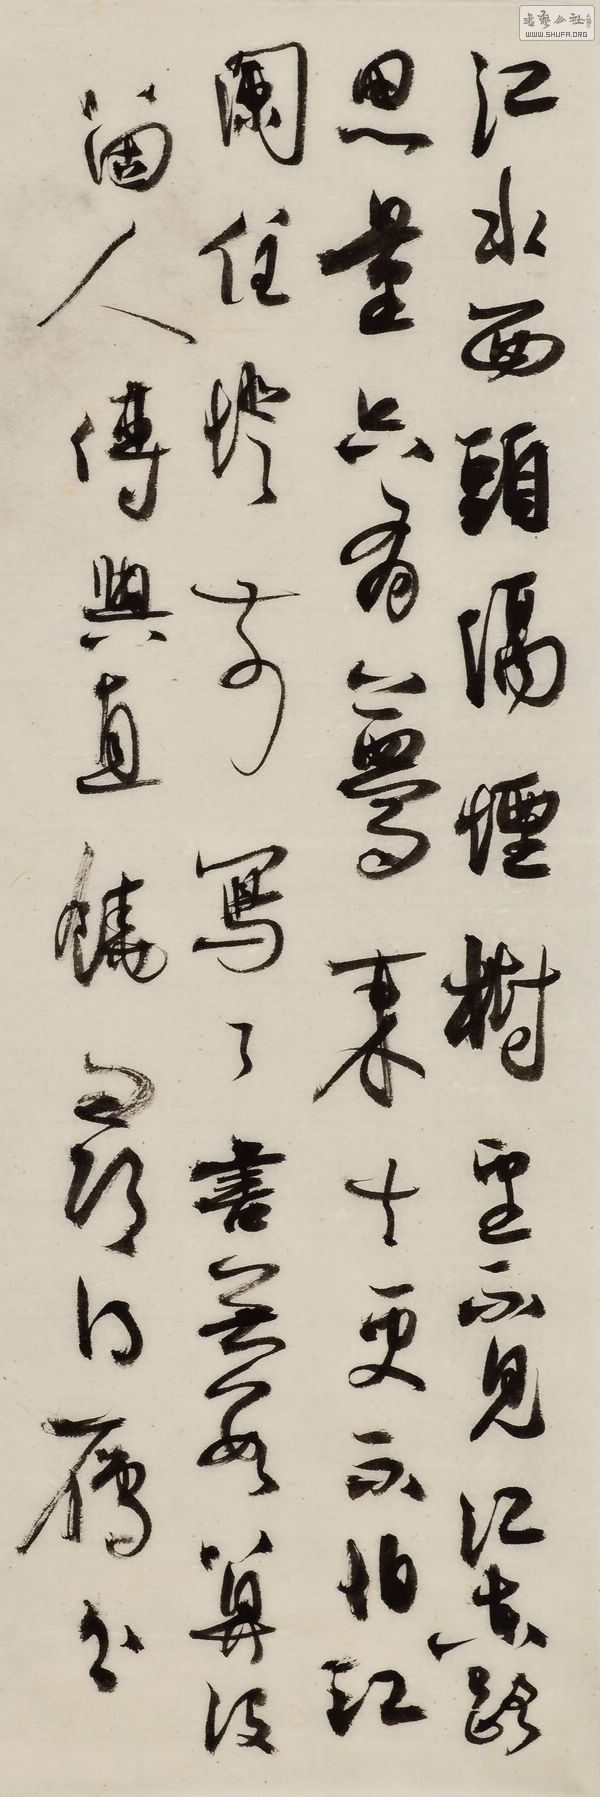 江水西頭隔煙樹望不見江東路
思量只有夢來去更不怕江
闌住燈前寫了書無數算沒
箇人傳與直饒尋得雁分
书艺公社
WWW.SHUFA.ORG